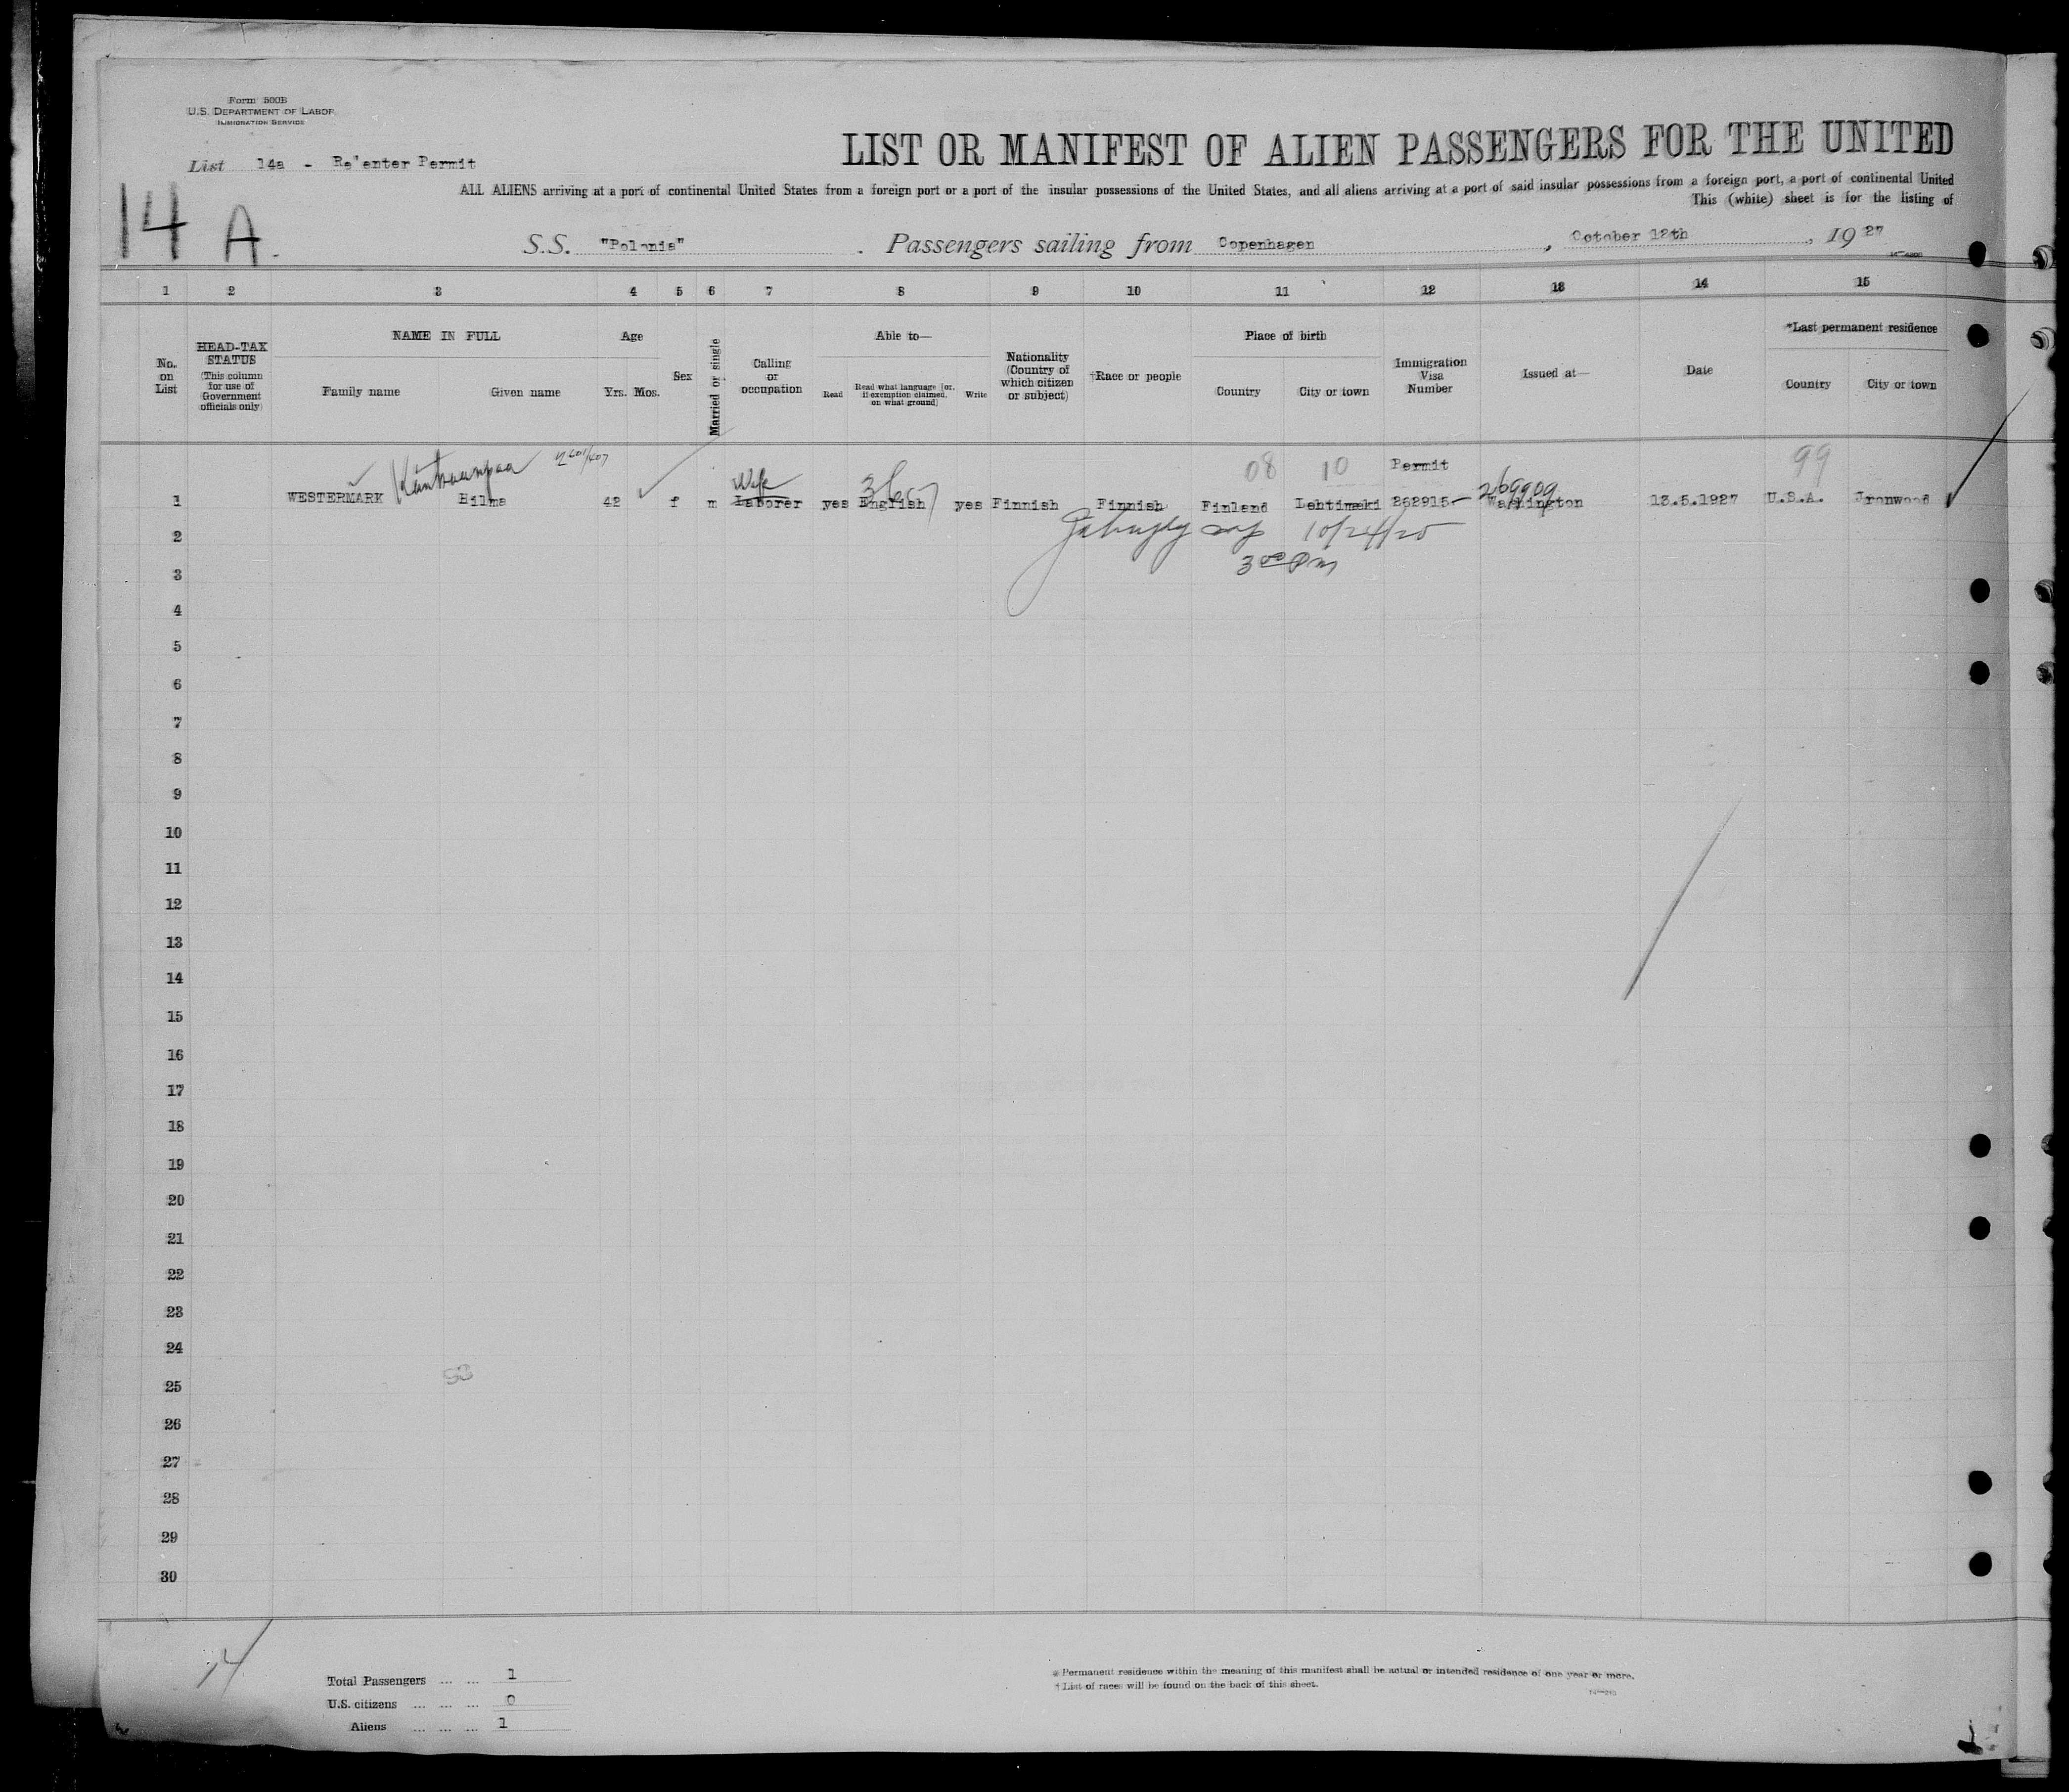 Form 500B
U.S. DEPARTMENT OF LABOR
IMMIGRATION SERVICE
List 14a - Re'enter Permit
14 A.
LIST OR MANIFEST OF ALIEN PASSENGERS FOR THE UNITED
ALL ALIENS arriving at a port of continental United States from a foreign port or a port of the insular possessions of the United States, and all aliens arriving at a port of said insular possessions from a foreign port, a port of continental United
This (white) sheet is for the listing of
S.S. "Polonia". Passengers sailing from Copenhagen, October 12th, 1927
1 2 3 4 5 6 7 8 9 10 11 12 13 14 15
No. on List
HEAD-TAX STATUS (This column for use of Government officials only)
NAME IN FULL
Family name Given name
Age
Yrs. Mos.
Sex
Married or single
Calling or occupation
Able to—
Read Read what language [or, if exemption claimed, on what ground] Write
Nationality (Country of which citizen or subject)
†Race or people
Place of birth
Country City or town
Immigration Visa Number
Issued at—
Date
*Last permanent residence
Country City or town
08 10 Permit 99
Wife
1 WESTERMARK Hilma 42 f m Laborer yes English yes Finnish Finnish Finland Lehtimäki 262915- 269909 Washington 13.5.1927 U.S.A. Ironwood
3 00 Pm
2
3
4
5
6
7
8
9
10
11
12
13
14
15
16
17
18
19
20
21
22
23
24
25
26
27
28
29
30
14
Total Passengers ... ... 1
U.S. citizens ... ... ... 0
Aliens ... ... ... 1
* Permanent residence within the meaning of this manifest shall be actual or intended residence of one year or more.
† List of races will be found on the back of this sheet.